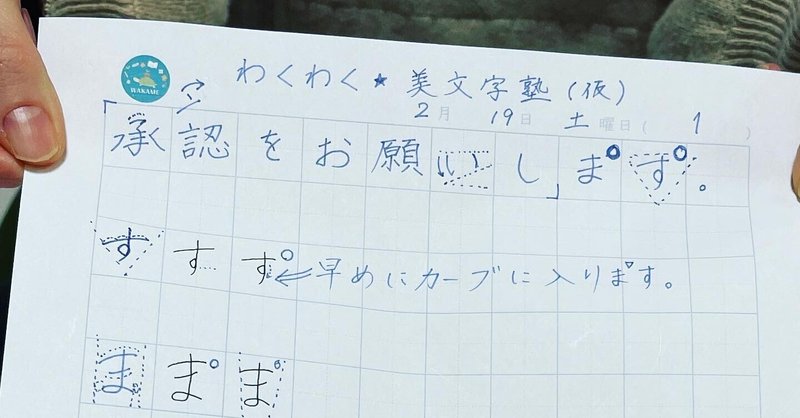 WAKAME
わくわく★美文字塾(仮)
2月 19日 土曜日( 1 )
「承認をお願いし」ます。
す す す ←早めにカーブに入ります。
ま ま ま